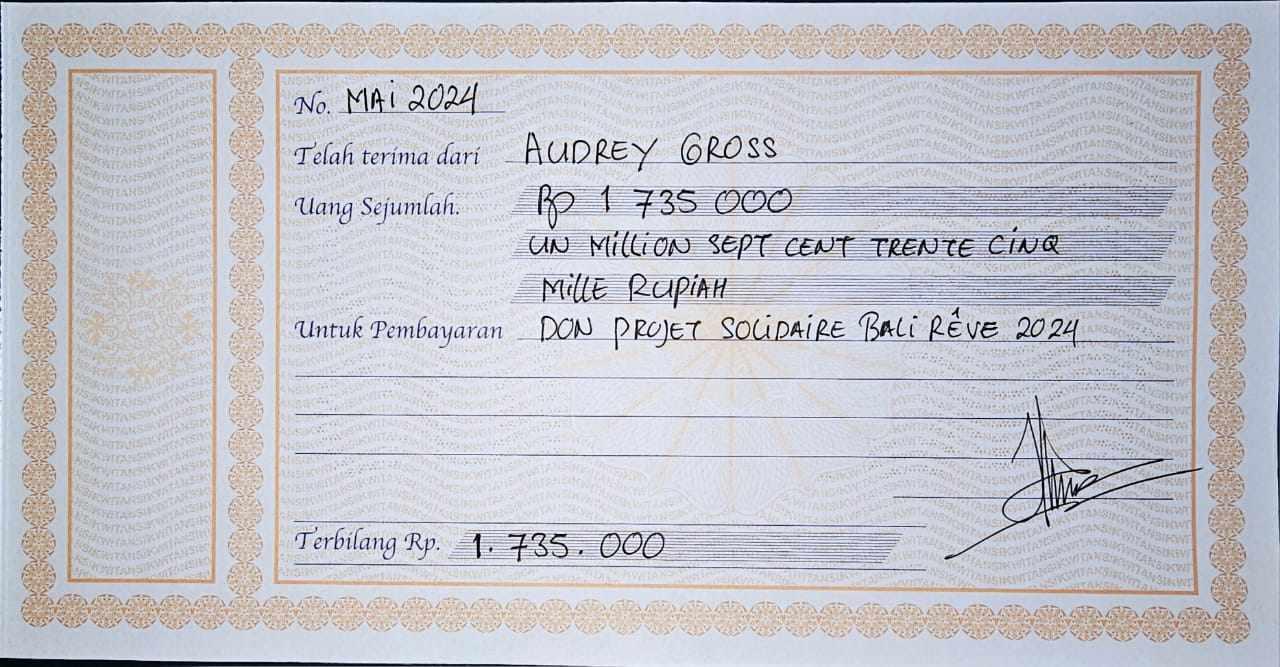 No. MAI 2024
Telah terima dari AUDREY GROSS
Uang Sejumlah. Rp 1 735 000
UN MILLION SEPT CENT TRENTE CINQ
MILLE RUPIAH
Untuk Pembayaran DON PROJET SOLIDAIRE BALI RÊVE 2024
Terbilang Rp. 1.735.000